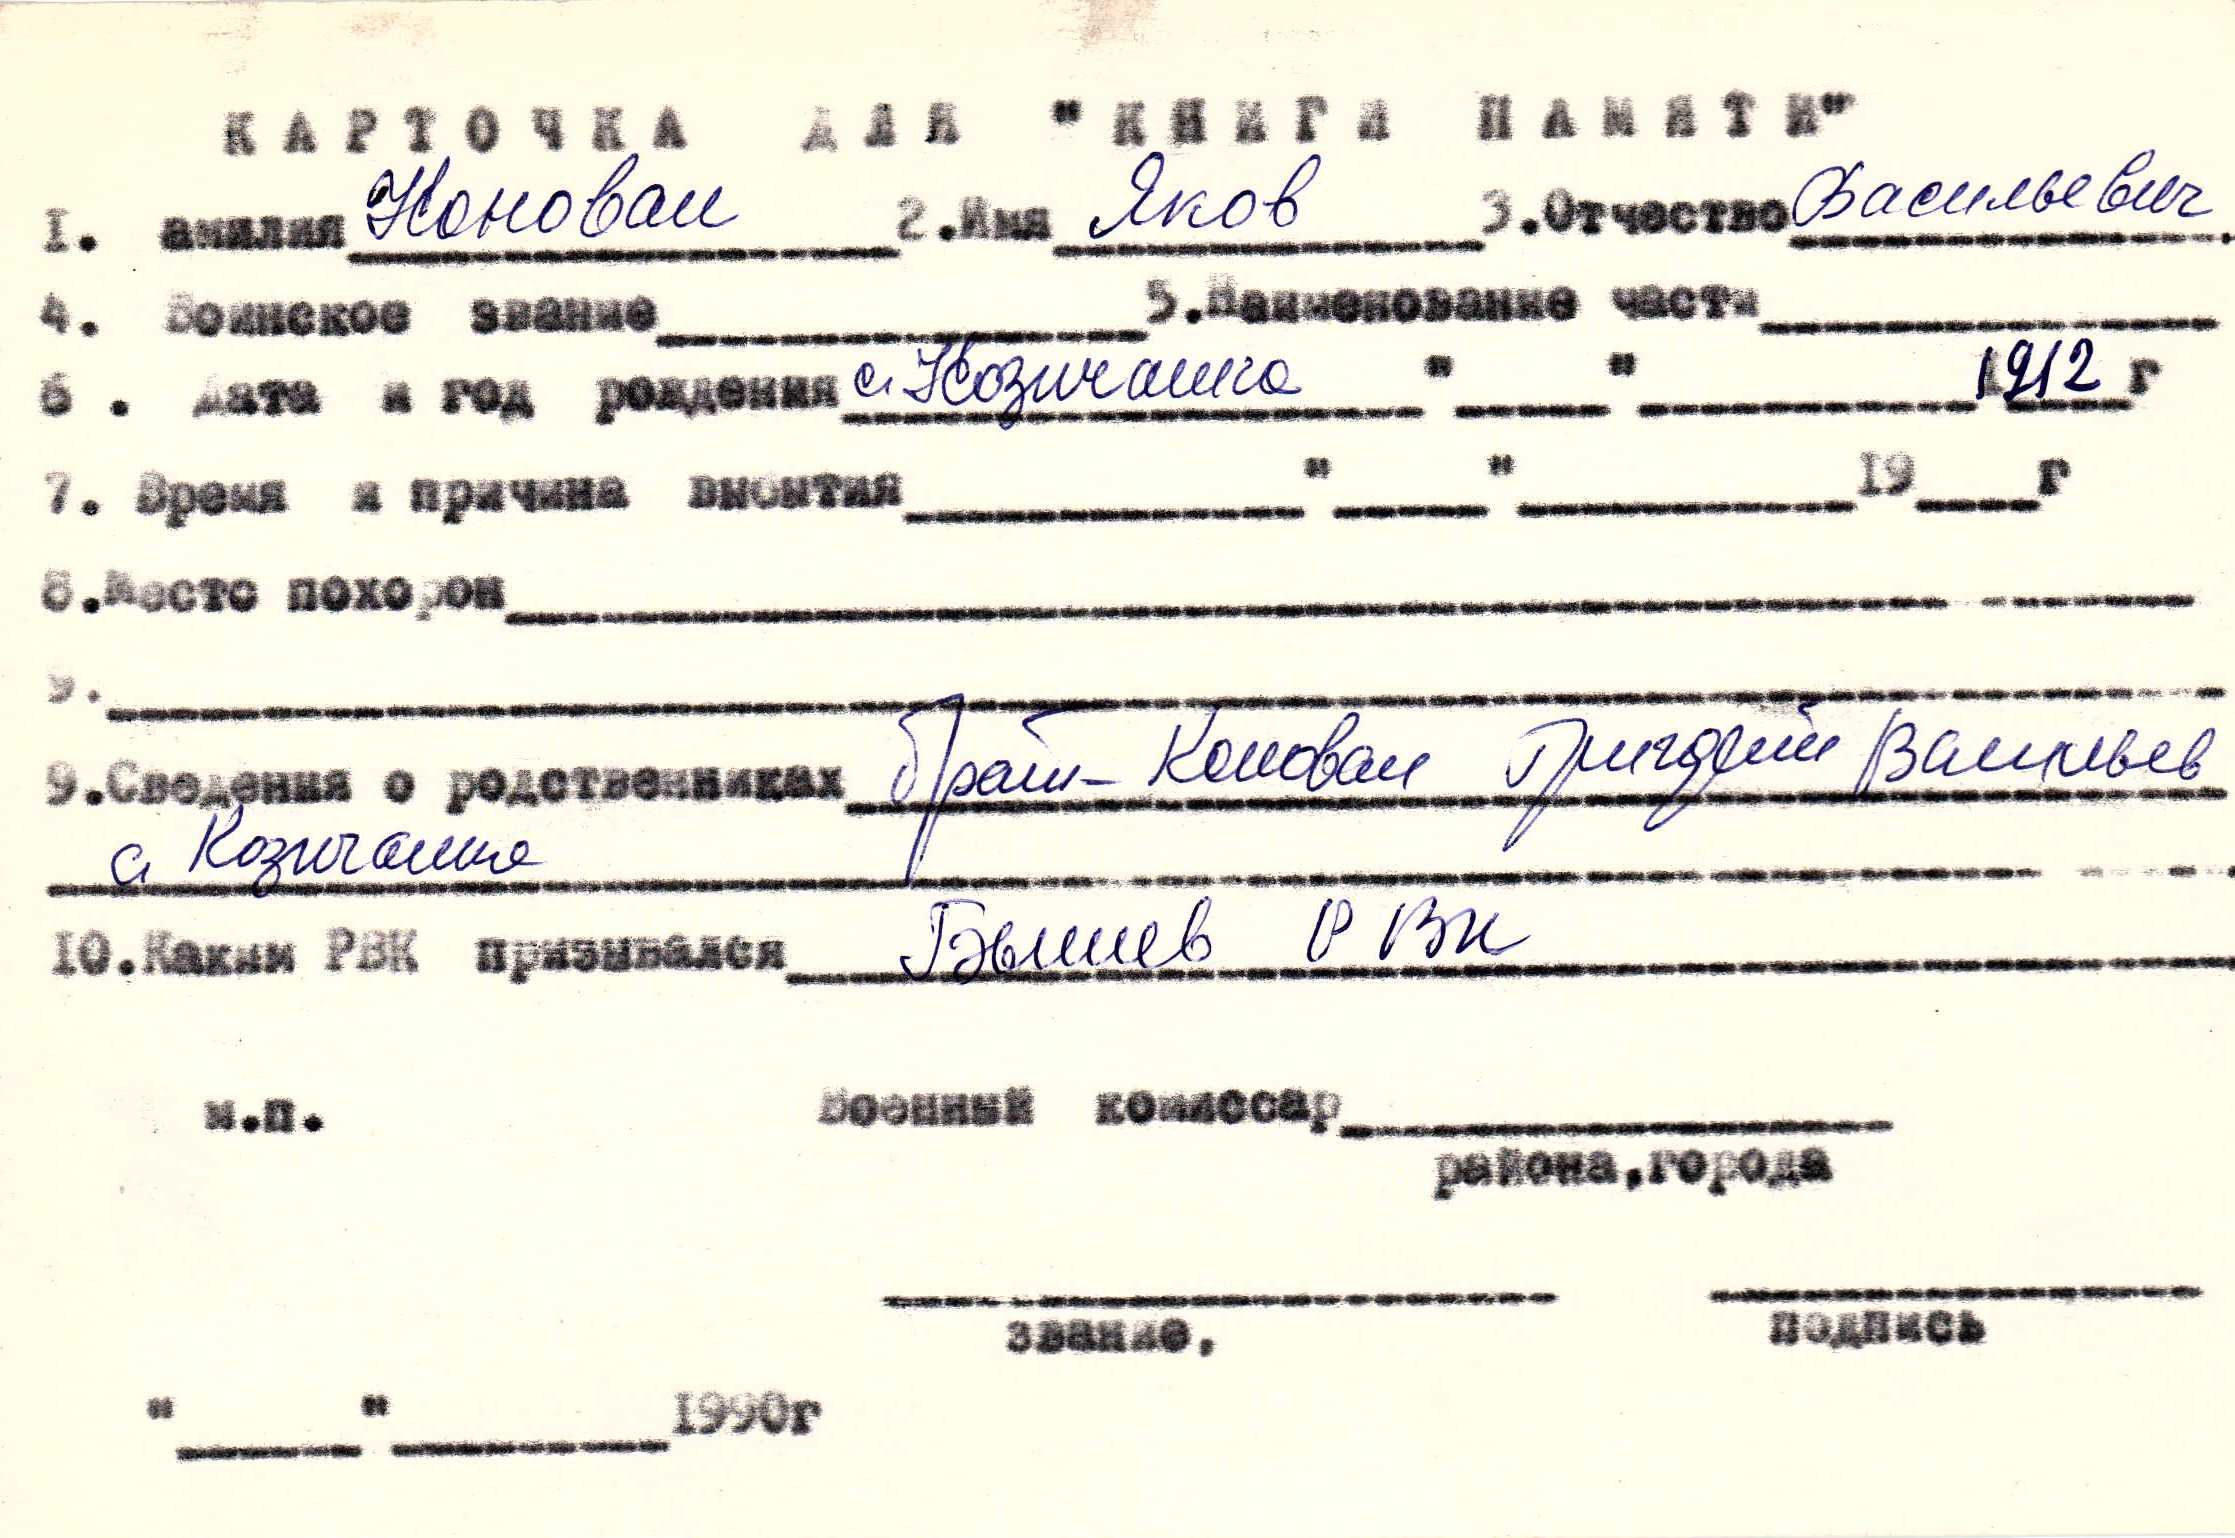 КАРТОЧКА ДЛЯ "КНИГИ ПАМЯТИ"
1. амилия Коновал 2.Имя Яков 3.Отчество Васильевич.
4. Воинское звание 5.Наименование части
6. Дата и год рождения с. Козичанка " " 1912 г
7. Время и причина выбытия " " 19 г
8.Место похорон
9.
9.Сведения о родственниках брат- Коновал Григорий Васильев
с. Козичанка
10.Каким РВК призывался Бышев РВК
м.п. Военный комиссар
района,города
звание, подпись
" " 1990г